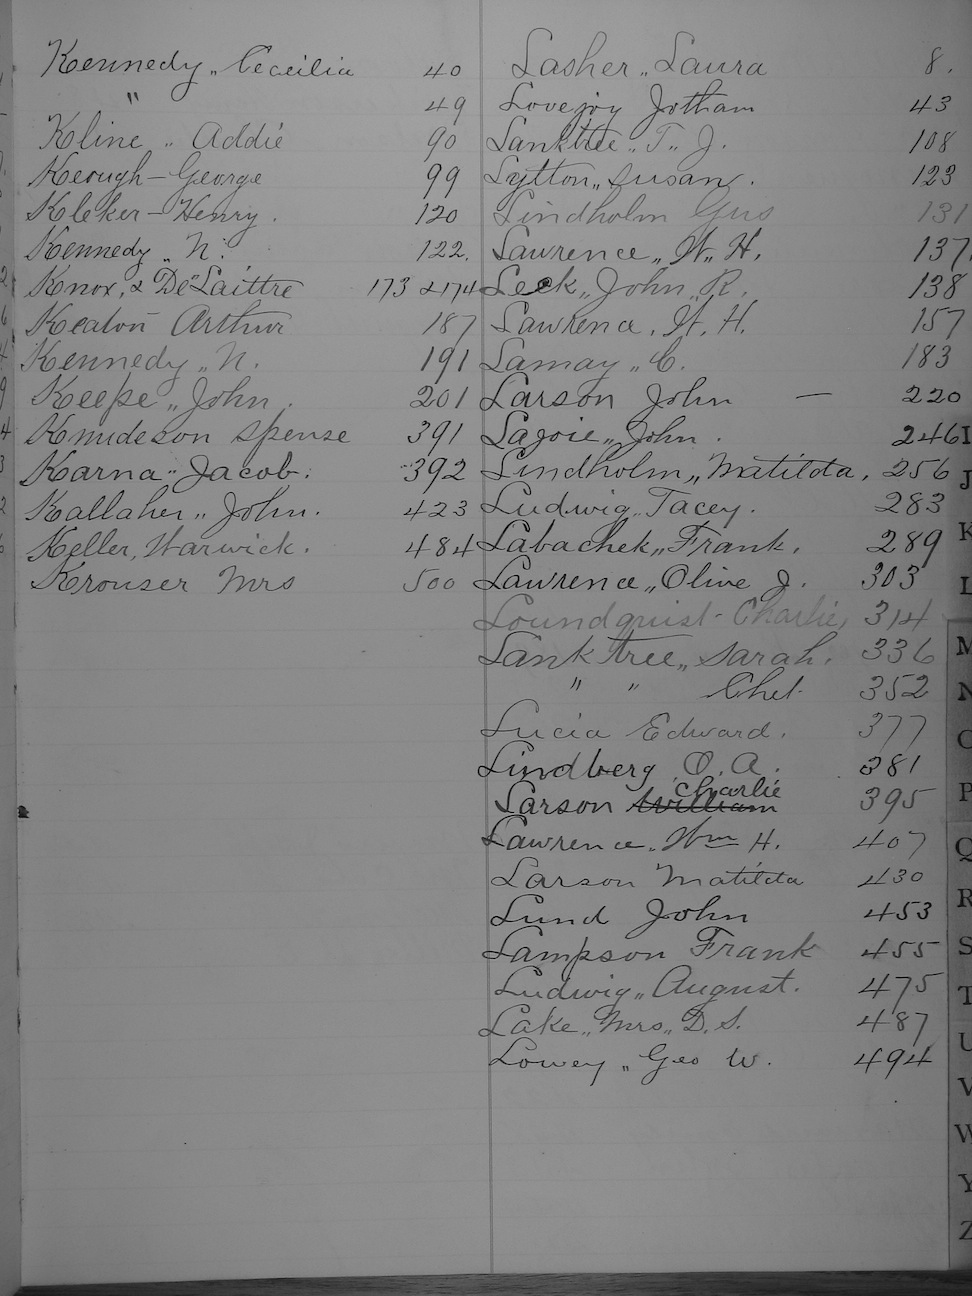 Kennedy „ Ceceilia 40
" 49
Kline „ Addie 90
Keough - George 99
Kleker - Henry. 120
Kennedy „ N. 122.
Knox, & De Laittre 173 & 174
Keaton Arthur 187
Kennedy „ N. 191
Keepe „ John. 201
Knudeson Spense 391
Karna „ Jacob. 392
Kallaher „ John. 423
Keller, Warwick. 484
Krouser Mrs 500
Lasher „ Laura 8.
Lovejoy Jotham 43
Lanktree „ T. J. 108
Lytton „ Susan. 123
Lindholm Gus 131
Lawrence „ W. H. 137
Leek „ John „ R. 138
Lawrence, W. H. 157
Lamay „ C. 183
Larson John — 220
Lajoie „ John. 246
Lindholm „ Matilda, 256
Ludwig „ Tacey. 283
Labachek „ Frank. 289
Lawrence „ Olive J. 303
Loundquist - Charlie, 314
Lanktree „ Sarah. 336
" " Chet. 352
Lucia Edward. 377
Lindberg O. A. 381
Larson William Charlie 395
Lawrence „ Wm H. 407
Larson Matilda 430
Lund John 453
Lampson Frank 455
Ludwig „ August. 475
Lake „ Mrs „ D. S. 487
Lowey „ Geo W. 494
I
J
K
L
M
N
O
P
Q
R
S
T
U
V
W
Y
Z